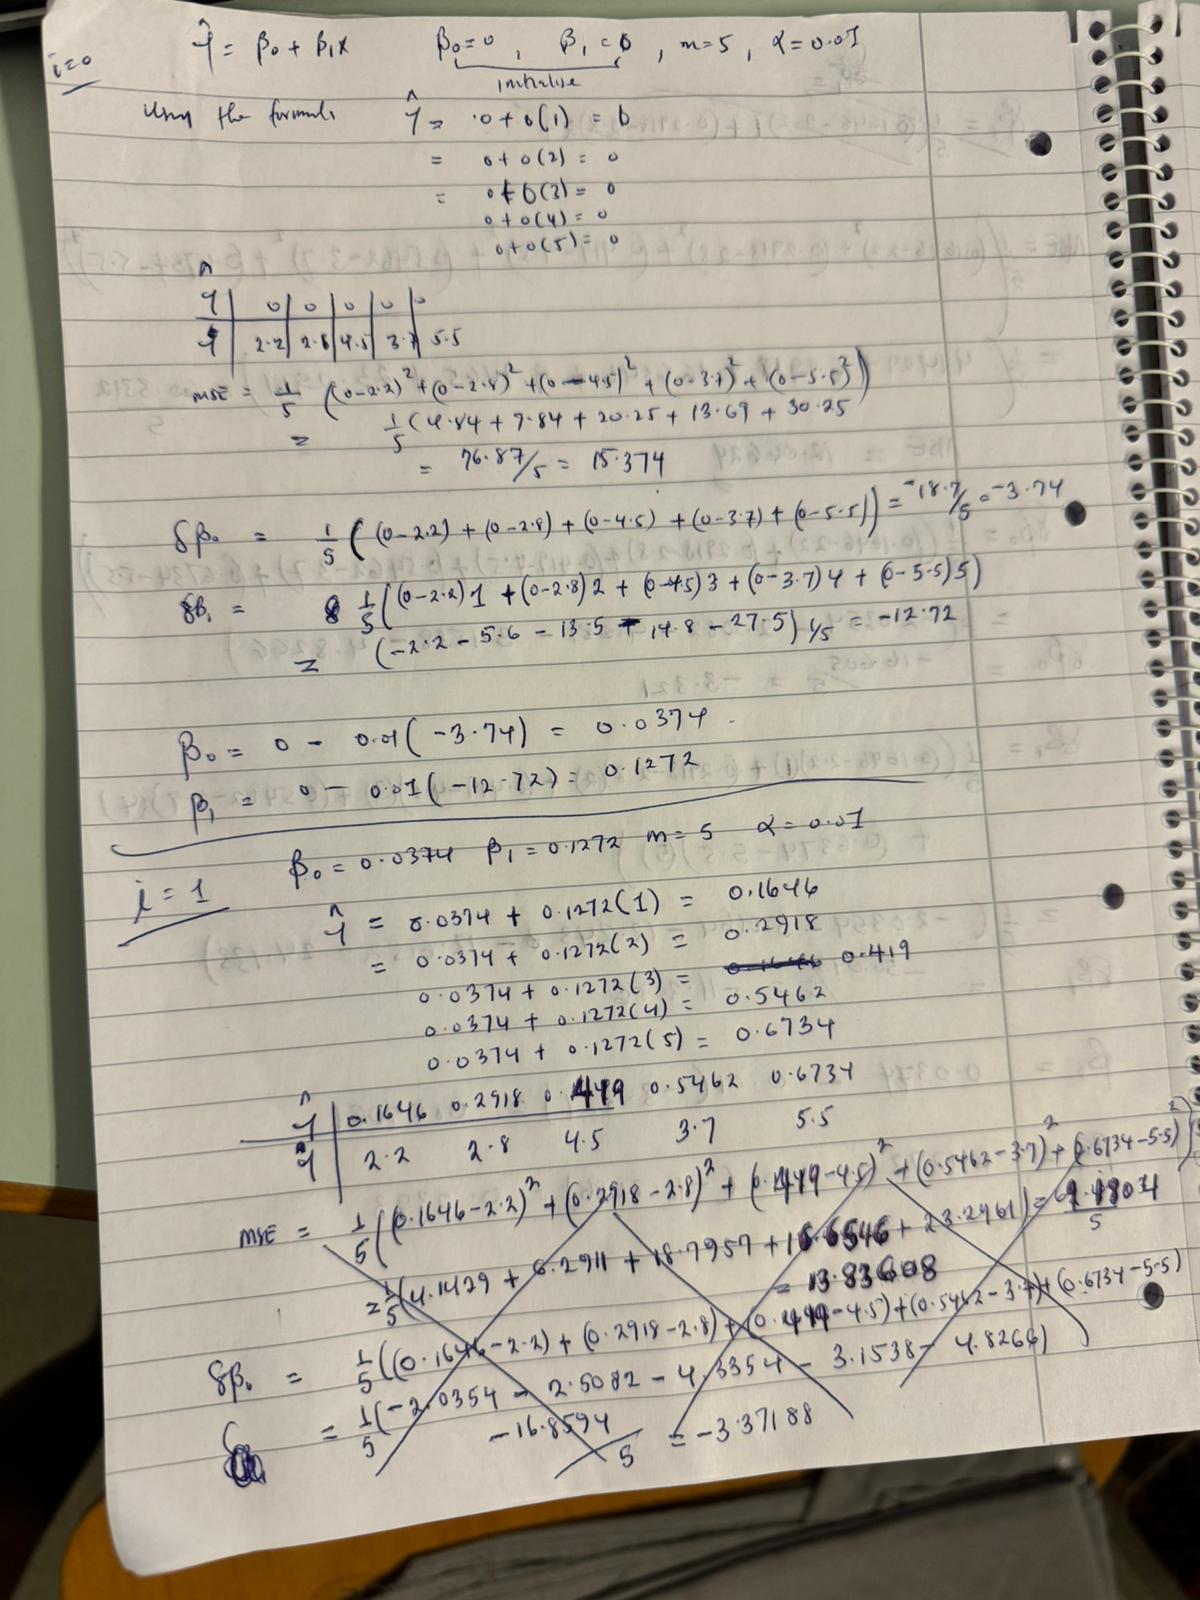 i=0
Ŷ = β₀ + β₁x β₀=0 , β₁=0 , m=5 , α=0.01
initialise
Using the formula Ŷ = 0+0(1) = 0
= 0+0(2) = 0
= 0+0(3) = 0
0+0(4) = 0
0+0(5) = 0
Ŷ | 0 | 0 | 0 | 0 | 0
Y | 2.2 | 2.8 | 4.5 | 3.7 | 5.5
MSE = 1/5 ((0-2.2)² + (0-2.8)² + (0-4.5)² + (0-3.7)² + (0-5.5)²)
= 1/5 (4.84 + 7.84 + 20.25 + 13.69 + 30.25
= 76.87/5 = 15.374
δβ₀ = 1/5 ((0-2.2) + (0-2.8) + (0-4.5) + (0-3.7) + (0-5.5)) = -18.7/5 = -3.74
δβ₁ = 1/5 ((0-2.2)1 + (0-2.8)2 + (0-4.5)3 + (0-3.7)4 + (0-5.5)5)
= (-2.2 - 5.6 - 13.5 - 14.8 - 27.5) 1/5 = -12.72
β₀ = 0 - 0.01(-3.74) = 0.0374
β₁ = 0 - 0.01(-12.72) = 0.1272
i=1 β₀=0.0374 β₁=0.1272 m=5 α=0.01
Ŷ = 0.0374 + 0.1272(1) = 0.1646
= 0.0374 + 0.1272(2) = 0.2918
0.0374 + 0.1272(3) = 0.1646 0.419
0.0374 + 0.1272(4) = 0.5462
0.0374 + 0.1272(5) = 0.6734
Ŷ | 0.1646 0.2918 0.419 0.5462 0.6734
Y | 2.2 2.8 4.5 3.7 5.5
MSE = 1/5 ((0.1646-2.2)² + (0.2918-2.8)² + (0.1449-4.5)² + (0.5462-3.7)² + (0.6734-5.5)²)
= 1/5 (4.1429 + 6.2911 + 18.7957 + + 23.2961) = /5
= 13.83608
δβ₀ = 1/5 ((0.1646-2.2) + (0.2918-2.8) + ( -4.5) + (0.5462-3.7) + (0.6734-5.5)
= 1/5 (-2.0354 - 2.5082 - 4.3354 - 3.1538 - 4.8266)
-16.8594/5 = -3.37188